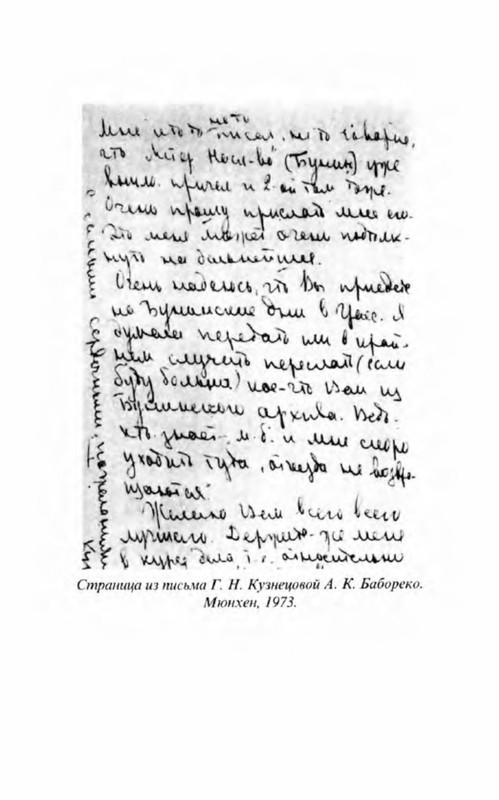 не то
Мне кто то писал, не то говорил,
что Литер. Насл-во" (Бунин) уже
вышло. причем и 2-ой том тоже.
Очень прошу прислать мне его.
Это меня может очень подтолк-
нуть на дальнейшее.
Очень надеюсь, что Вы приедете
на Бунинские дни в . Я
думала передать им в край-
нем случае переслать (если
буду больна) кое-что Вам из
Бунинского архива. Ведь-
кто знает - м. б. и мне скоро
уходить туда, откуда не возвра-
щаются.
Желаю Вам всего всего
лучшего. Держите же меня
в курсе дела, т. е. относительно
с самыми сердечными пожеланиями
Страница из письма Г. Н. Кузнецовой А. К. Бабореко.
Мюнхен, 1973.